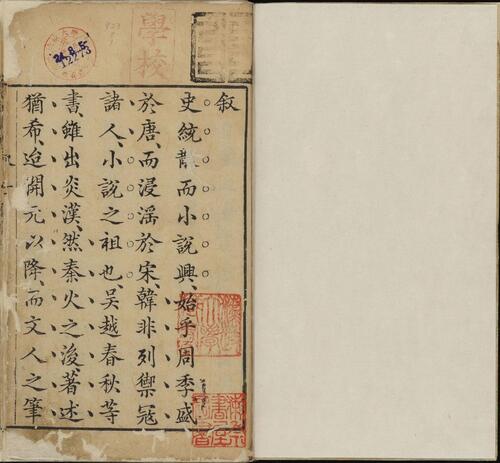 叙
史統散而小說興、始乎周季、盛
於唐、而浸淫於宋、韓非列禦冦
諸人、小說之祖也、吳越春秋等
書、雖出炎漢、然秦火之後、著述
猶希、迨開元以降、而文人之筆
學校
24.8.5